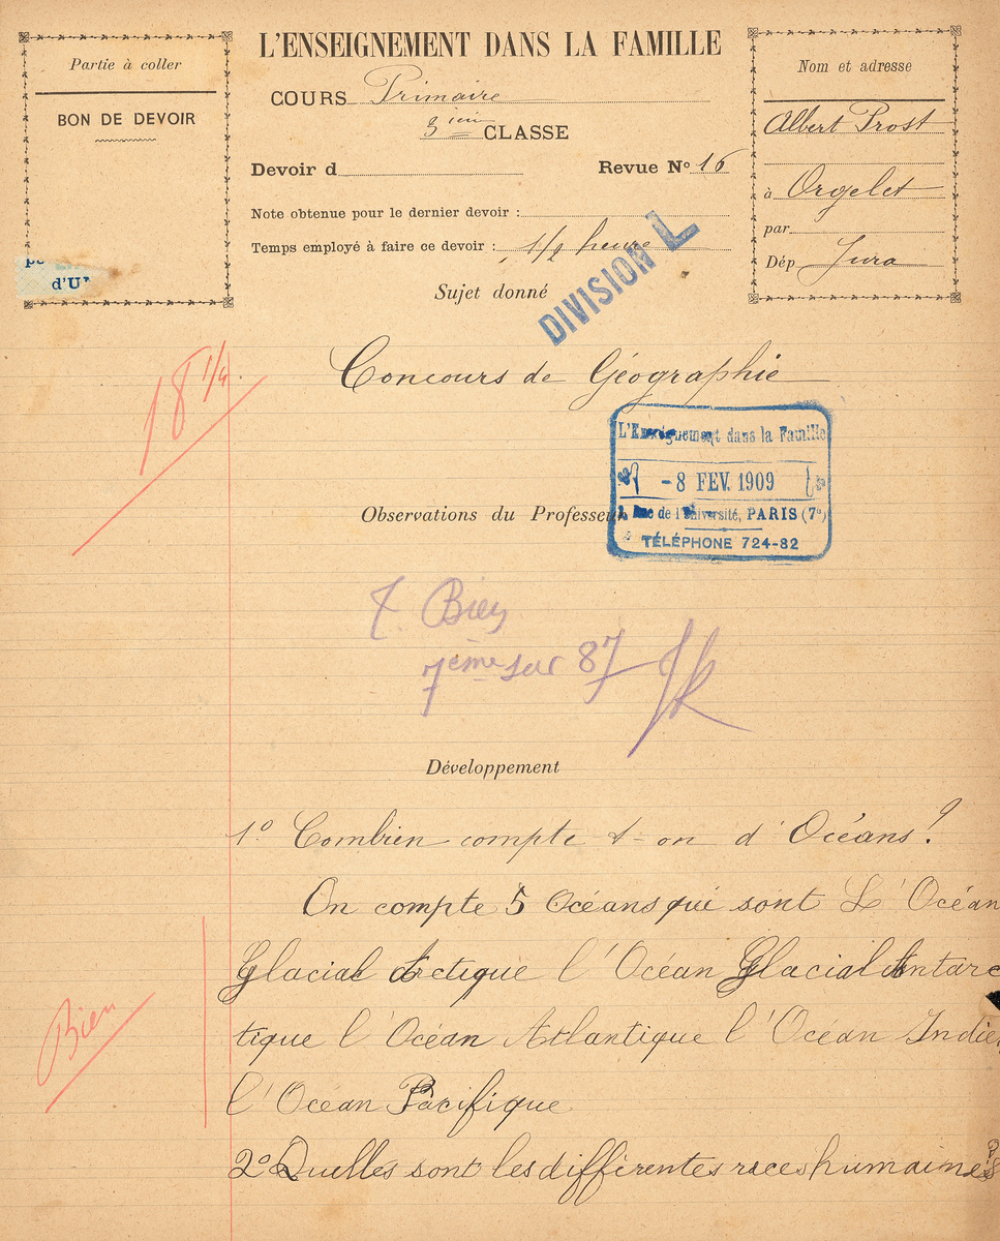 L'ENSEIGNEMENT DANS LA FAMILLE
Partie à coller
BON DE DEVOIR
d'U
COURS Primaire
3ième CLASSE
Devoir d
Revue No 16
Note obtenue pour le dernier devoir :
Temps employé à faire ce devoir : 1/2 heure
Nom et adresse
Albert Prost
à Orgelet
par
Dép Jura
DIVISION L
Sujet donné
18 1/4
Concours de Géographie
L'Enseignement dans la Famille
-8 FEV. 1909
Rue de l'Université, PARIS (7e)
TÉLÉPHONE 724-82
Observations du Professeur
T. Bien
7ème sur 87
Développement
1º Combien compte t-on d'Océans?
On compte 5 Océans qui sont L'Océan
Glacial Arctique l'Océan Glacial Antarc
tique l'Océan Atlantique l'Océan Indien
Bien
l'Océan Pacifique
2º Quelles sont les différentes races humaines?